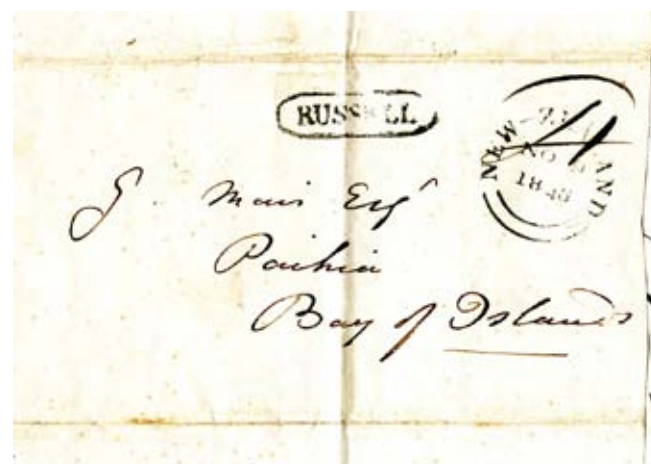 RUSSELL
NEW-ZEALAND
NO
1843
4
G. Mair Esq
Paihia
Bay of Islands